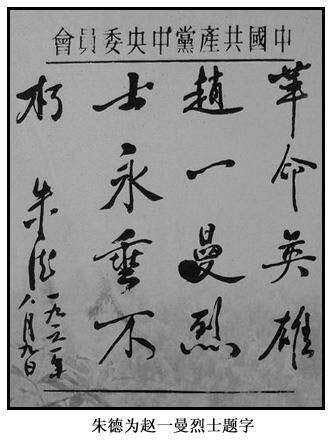 中國共產黨中央委員會
革命英雄
趙一曼烈
士永垂不
朽 朱德
一九六一年
八月九日
朱德为赵一曼烈士题字